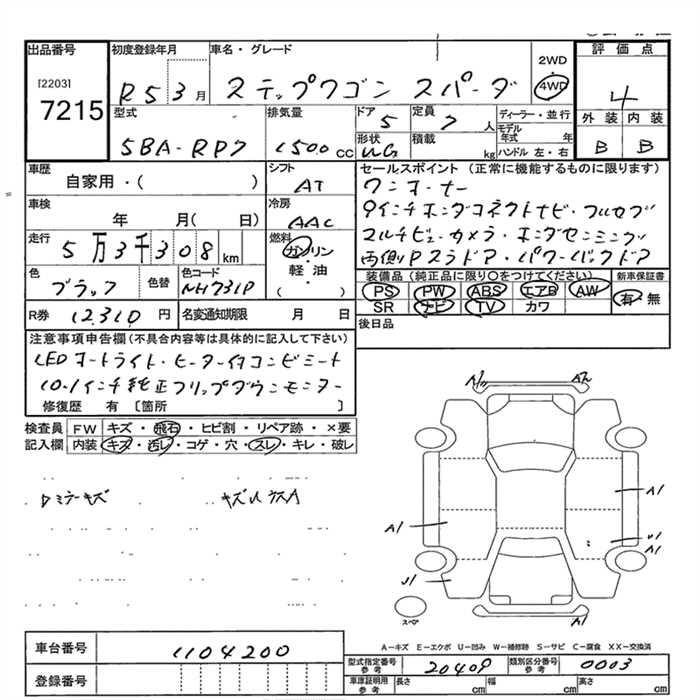 出品番号 初度登録年月 車名・グレード 評価点
[2203] 7215
R5 3月 ステップワゴン スパーダ 2WD 4WD 4
型式 排気量 ドア 定員 ディーラー・並行 外装 内装
5BA-RP7 1500 cc 5 7人 モデル年式 年 B B
形状 積載 kg ハンドル 左・右
車歴 シフト セールスポイント (正常に機能するものに限ります)
自家用・( ) AT ワンオーナー
車検 冷房 9インチホンダコネクトナビ・フルセグ
年 月( 日) AAC マルチビューカメラ・ホンダセンシング
走行 燃料 両側Pスラドア・パワーバックドア
5万3千308km ガソリン・軽油・( )
装備品 (純正品に限り○をつけてください) 新車保証書
色 色替 色コード PS PW ABS エアB AW 有・無
ブラック NH731P SR ナビ TV カワ
R券 12310円 名変通知期限 月 日 後日品
注意事項申告欄 (不具合内容等は具体的に記入して下さい)
LEDオートライト・ヒーター付コンビシート
10.1インチ純正フリップダウンモニター
修復歴 有 [箇所 ]
検査員 FW キズ・飛石・ヒビ割・リペア跡・×要
記入欄 内装 キズ・汚レ・コゲ・穴・スレ・キレ・破レ
ロミラーキズ
A1
A1
A1
U1
A1
U1
A1
スペア
A-キズ E-エクボ U-凹み W-補修跡 S-サビ C-腐食 XX-交換済
車台番号 1104200
型式指定番号 参考 20409 類別区分番号 参考 0003
登録番号 車庫証明用 参考 長さ cm 幅 cm 高さ cm